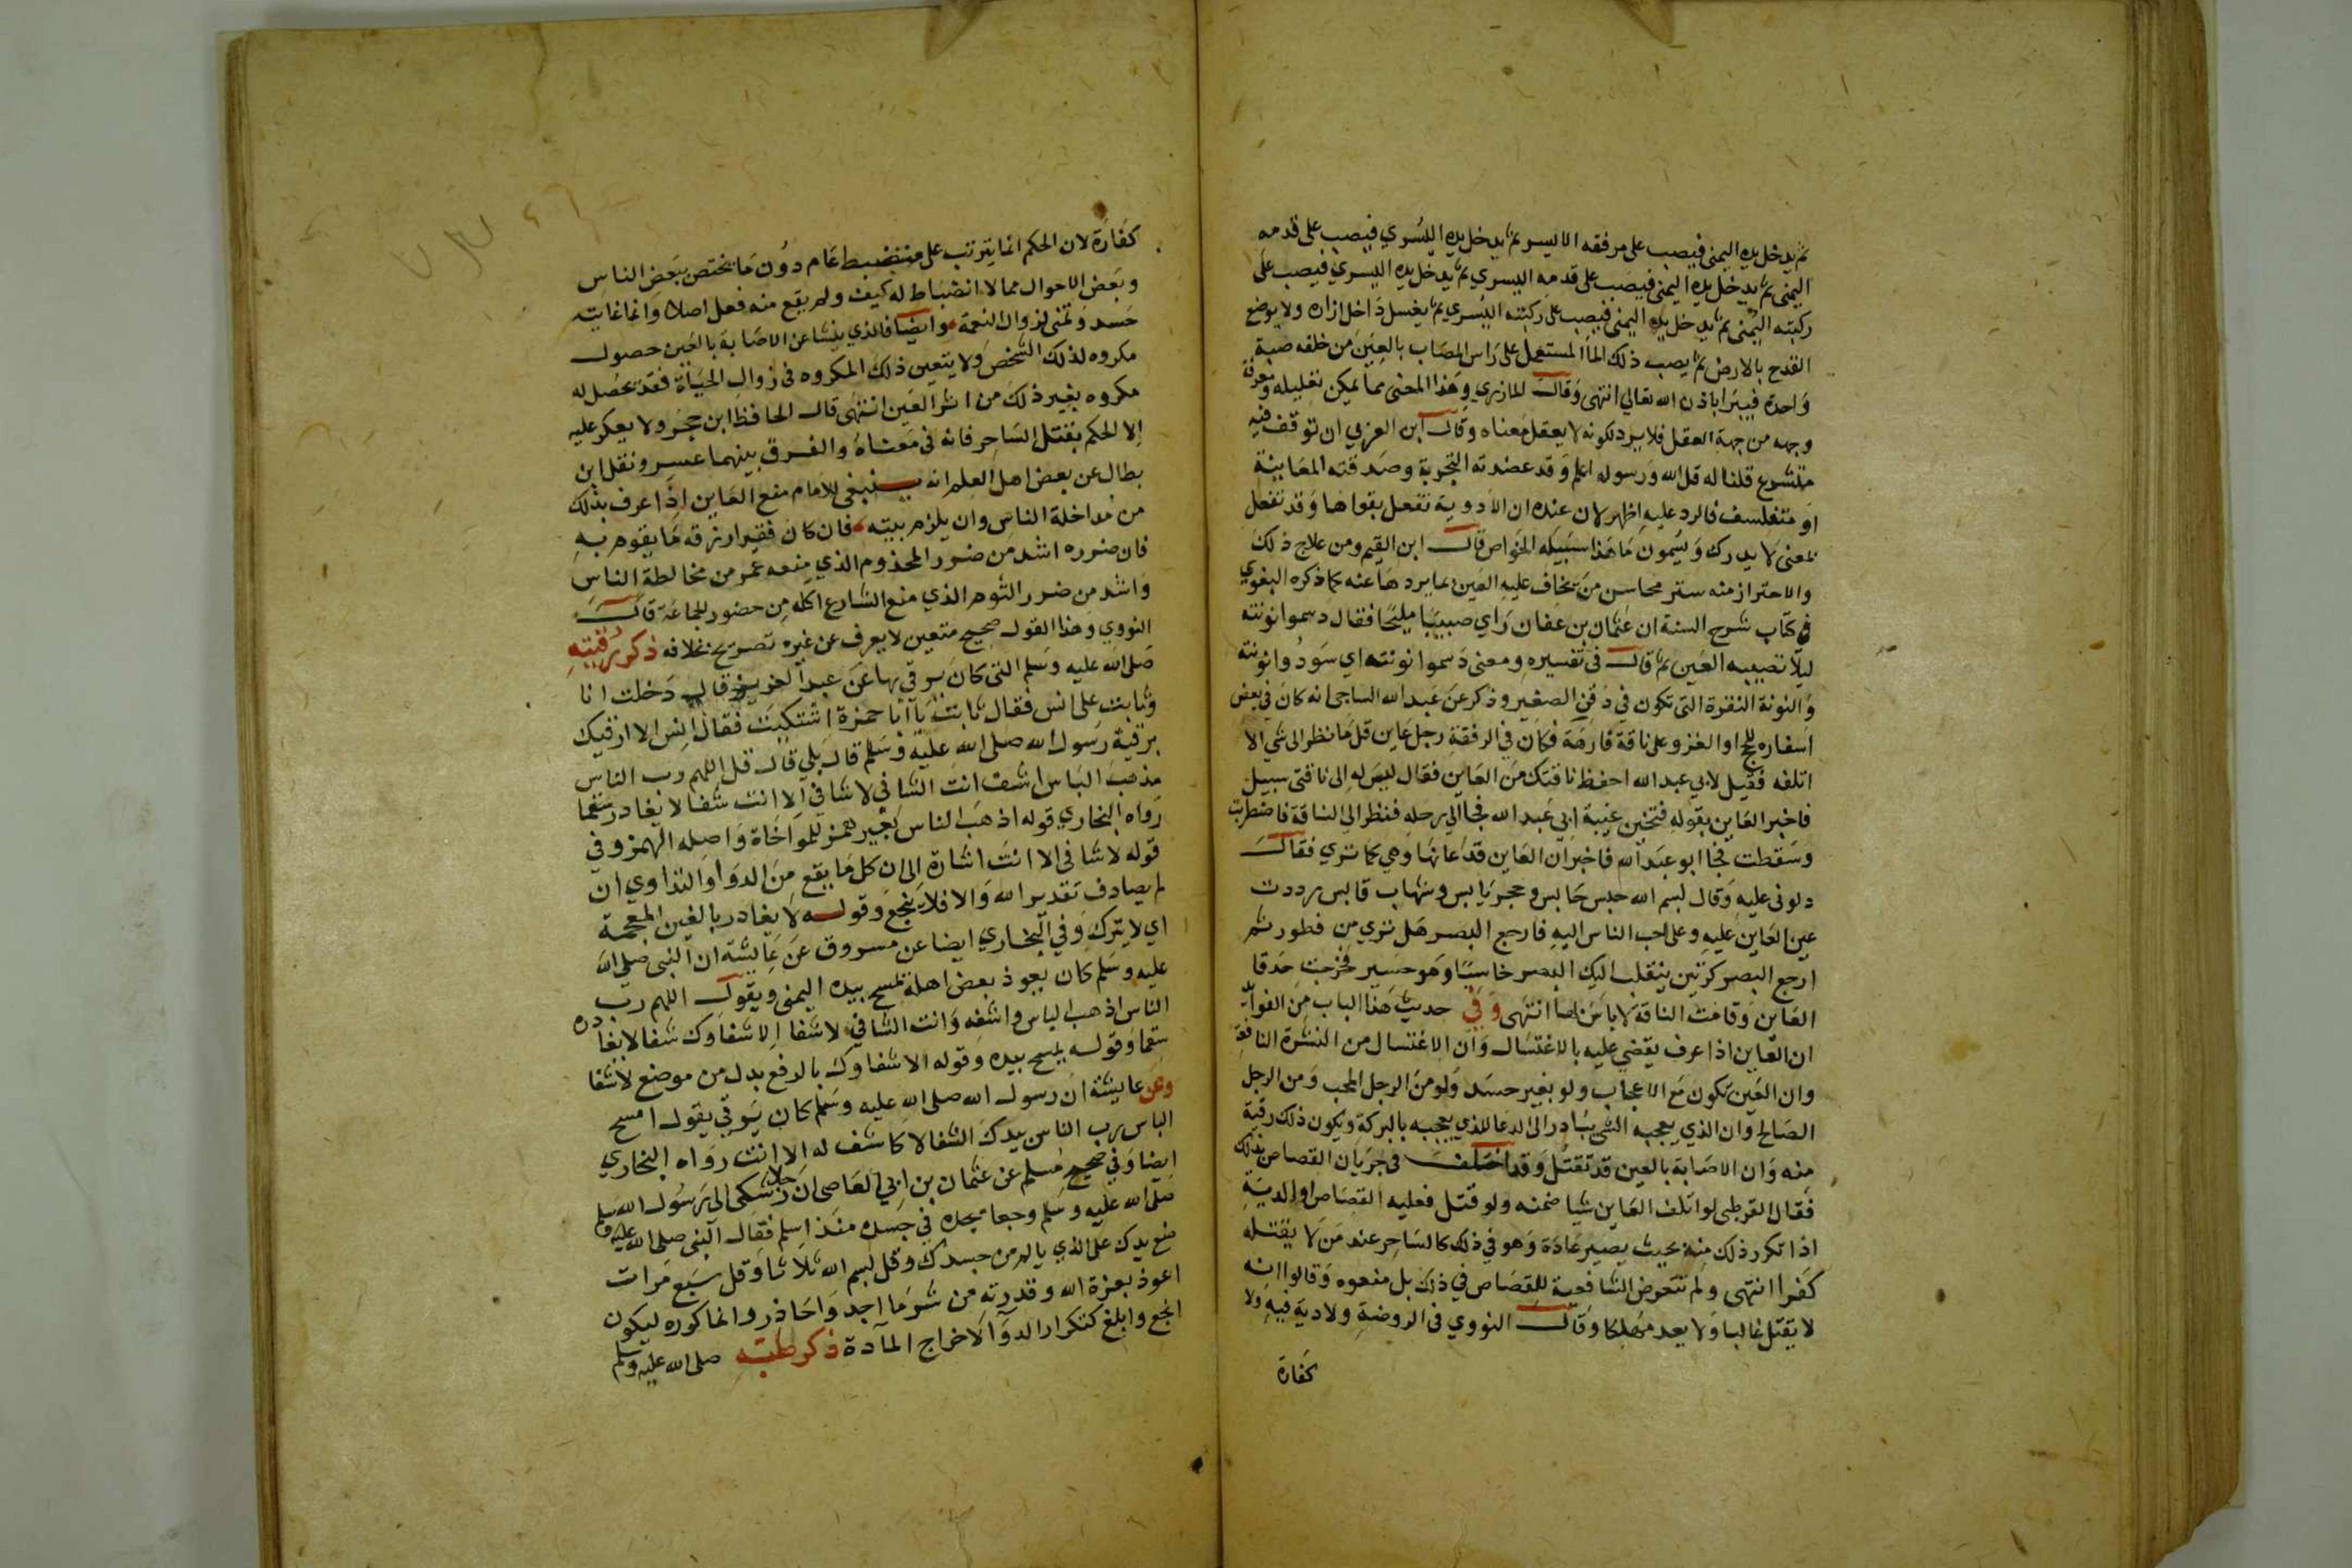 ثم يدخل يده اليمنى فيصب على مرفقه الايسر ثم يدخل يده اليسرى فيصب على قدمه
اليمنى ثم يدخل يده اليمنى فيصب على قدمه اليسرى ثم يدخل يده اليسرى فيصب على
ركبته اليمنى ثم يدخل يده اليمنى فيصب على ركبته اليسرى ثم يغسل داخل ازاره ولا يوضع
القدح بالارض ثم يصب ذلك الما المستعمل على راس المصاب بالعين من خلفه صبة
واحدة فيبرا باذن الله تعالى انتهى وقال المازري وهذا المعنى مما لا يمكن تعليله ومعرفة
وجهه من جهة العقل فلا يرد لكونه لا يعقل معناه وقال ابن العربي ان توقف فيه
متشرع قلنا له قل الله ورسوله اعلم وقد عضدته التجربة وصدقته المعاينة
او متفلسف فالرد عليه اظهر لان عنده ان الادوية تفعل بقواها وقد تفعل
بمعنى لا يدرك ويسمون ما هذا سبيله الخواص قال ابن القيم ومن علاج ذلك
والاحتراز منه ستر محاسن من تخاف عليه العين بما يردها عنه كما ذكره البغوي
في كتاب شرح السنة ان عثمان بن عفان راى صبيا مليحا فقال دسموا نونته
ليلا تصيبه العين ثم قال في تفسيره ومعنى دسموا نونته اي سودوا نونته
والنونة النقرة التي تكون في ذقن الصغير وذكر عن عبد الله الساجى انه كان في بعض
اسفاره للحج او الغزو على ناقة فارهة فكان في الرفقة رجل عاين قل ما نظر الى شي الا
اتلفه فقيل لابي عبد الله احفظ ناقتك من العاين فقال ليس له الى ناقتى سبيل
فاخبر العاين بقوله فتحين غيبة ابي عبد الله فجا الى رحله فنظر الى الناقة فاضطربت
وسقطت فجا ابو عبد الله فاخبر ان العاين قد عانها وهي كما ترى فقال
دلوني عليه وقال بسم الله حبس حابس وحجر يابس وشهاب قابس رددت
عين العاين عليه وعلى احب الناس اليه فارجع البصر هل ترى من فطور ثم
ارجع البصر كرتين ينقلب اليك البصر خاسئا وهو حسير فخرجت حدقا
العاين وقامت الناقة لا باس بها انتهى وفي حديث هذا الباب من الفوائد
ان العاين اذا عرف يقضى عليه بالاغتسال وان الاغتسال من النشرة النافعة
وان العين تكون مع الاعجاب ولو بغير حسد ولو من الرجل المحب ومن الرجل
الصالح وان الذي يعجبه الشي يبادر الى الدعا للذي يعجبه بالبركة ويكون ذلك رقية
منه وان الاصابة بالعين قد تقتل وقد اختلف في جريان القصاص بذلك
فقال القرطبي لو اتلف العاين شيا ضمنه ولو قتل فعليه القصاص او الدية
اذا تكرر ذلك منه بحيث يصير عادة وهو في ذلك كالساحر عند من لا يقتله
كفرا انتهى ولم تتعرض الشافعية للقصاص في ذلك بل منعوه وقالوا انه
لا يقتل غالبا ولا يعد مهلكا وقال النووي في الروضة ولا دية فيه ولا
كفارة
كفارة لان الحكم انما يترتب على منضبط عام دون ما يختص ببعض الناس
وبعض الاحوال مما لا انضباط له كيف ولم يقع منه فعل اصلا وانما غايته
حسد وتمنى لزوال النعمة وايضا فالذي ينشا عن الاصابة بالعين حصول
مكروه لذلك الشخص ولا يتعين ذلك المكروه في زوال الحياة فقد يحصل له
مكروه بغير ذلك من اثر العين انتهى قال الحافظ ابن حجر ولا يعكر عليه
الا الحكم بقتل الساحر فانه في معناه والفرق بينهما عسر ونقل ابن
بطال عن بعض اهل العلم انه ينبغي للامام منع العاين اذا عرف بذلك
من مداخلة الناس وان يلزم بيته فان كان فقيرا رزقه ما يقوم به
فان ضرره اشد من ضرر المجذوم الذي منعه عمر من مخالطة الناس
واشد من ضرر الثوم الذي منع الشارع اكله من حضور الجماعة قال
النووي وهذا القول صحيح متعين لا يعرف عن غيره تصريح بخلافه ذكر رقيته
صلى الله عليه وسلم التي كان يرقي بها عن عبد العزيز قال دخلت انا
وثابت على انس فقال ثابت يا ابا حمزة اشتكيت فقال انس الا ارقيك
برقية رسول الله صلى الله عليه وسلم قال بلى قال قل اللهم رب الناس
مذهب الباس اشف انت الشافي لا شافي الا انت شفا لا يغادر سقما
رواه البخاري قوله اذهب الباس بغير همز للمواخاة واصله الهمز وفي
قوله لا شافي الا انت اشارة الى ان كل ما يقع من الدوا والتداوي ان
لم يصادف تقدير الله والا فلا ينجع وقوله لا يغادر بالغين المعجمة
اي لا يترك وفي البخاري ايضا عن مسروق عن عايشة ان النبي صلى الله
عليه وسلم كان يعوذ بعض اهله يمسح بيده اليمنى ويقول اللهم رب
الناس اذهب الباس واشفه وانت الشافي لا شفا الا شفاوك شفا لا يغادره
سقما وقوله يمسح بيده وقوله الا شفاوك بالرفع بدل من موضع لا شفا
وعن عايشة ان رسول الله صلى الله عليه وسلم كان يرقي يقول امسح
الباس رب الناس بيدك الشفا لا كاشف له الا انت رواه البخاري
ايضا وفي صحيح مسلم عن عثمان بن ابي العاصى انه شكى الى رسول الله صلى
صلى الله عليه وسلم وجعا يجده في جسده منذ اسلم فقال النبي صلى الله عليه وسلم
ضع يدك على الذي يالم من جسدك وقل بسم الله ثلاثا وقل سبع مرات
اعوذ بعزة الله وقدرته من شر ما اجد واحاذر وانما كرره ليكون
انجع وابلغ كتكرار الدوا لاخراج المادة ذكر طبه صلى الله عليه وسلم